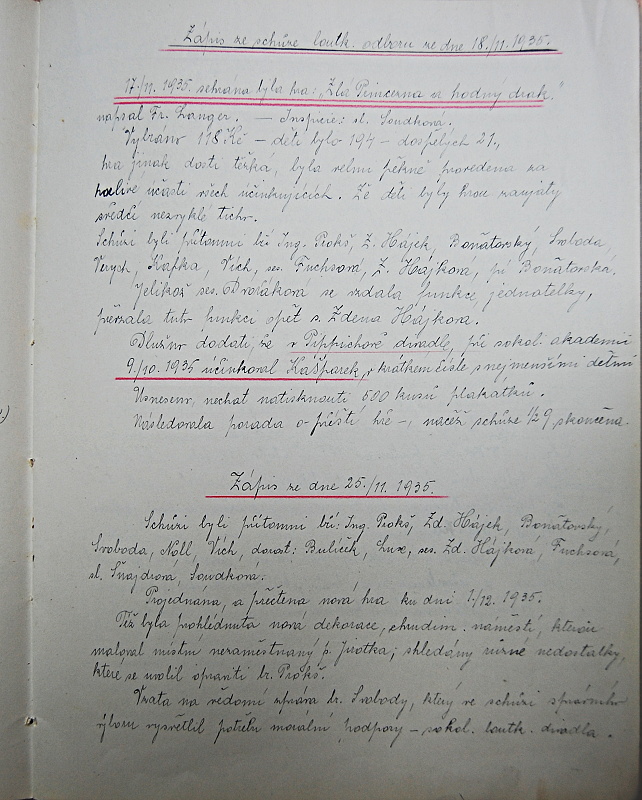 Zápis ze schůze loutk. odboru ze dne 18./11. 1935.
17./11. 1935. sehrána byla hra: „Zlá Princezna a hodný drak."
napsal Fr. Langer. — Inspicie: sl. Soudková.
Vybráno 118 Kč — dětí bylo 194 — dospělých 21.,
hra jinak dosti těžká, byla velmi pěkně provedena za
horlivé účasti všech účinkujících. Že děti byly hrou zaujaty
svědčí nezvyklé ticho.
Schůzi byli přítomni bří Ing. Prokš, Z. Hájek, Boňatovský, Svoboda,
Verych, Kafka, Vích, ses. Fuchsová, Z. Hájkova, pí Boňatovská.
Jelikož ses. Dvořáková se vzdala funkce jednatelky,
převzala tuto funkci opět s. Zdena Hájkova.
Dlužno dodati, že v Pippichově divadle, při sokol. akademii
9./10. 1935 účinkoval Kašpárek, v krátkém čísle s nejmenšími dětmi
Usneseno, nechat natisknouti 500 kusů plakátků.
Následovala porada o příští hře —, načež schůze ½ 9 skončena.
Zápis ze dne 25./11. 1935.
Schůzi byli přítomni bří: Ing. Prokš, Zd. Hájek, Boňatovský,
Svoboda, Noll, Vích, dorost: Bulíček, Lux, ses. Zd. Hájková, Fuchsová,
sl. Šnajdrová, Soudková.
Projednána, a přečtena nová hra ku dni 1./12. 1935.
Též byla prohlédnuta nová dekorace, chrudim. náměstí, kterou
maloval místní nezaměstnaný p. Jirotka; shledány různé nedostatky,
které se uvolil opraviti br. Prokš.
Vzata na vědomí zpráva br. Svobody, který ve schůzi správního
výboru vysvětlil potřebu morální podpory — sokol. loutk. divadla.